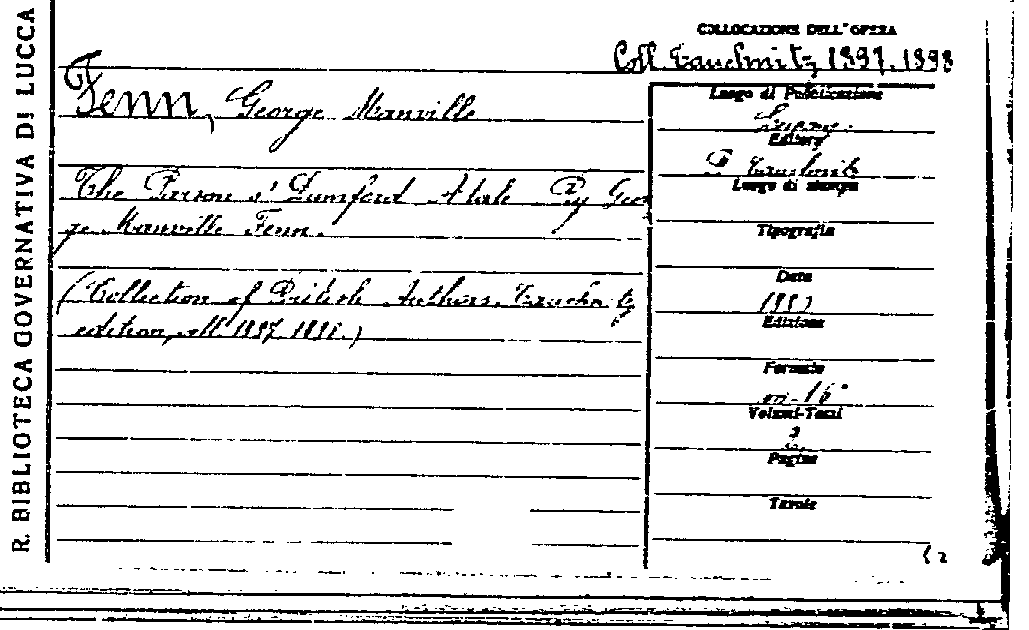 R. BIBLIOTECA GOVERNATIVA DI LUCCA
COLLOCAZIONE DELL'OPERA
Coll. Tauchnitz 1897. 1898
Fenn, George Manville
The Parson o' Dumford A tale By Geor
ge Manville Fenn.
(Collection of British Authors. Tauchnitz
edition, voll 1897. 1898.)
Luogo di Pubblicazione
Editore
B. Tauchnitz
Luogo di stampa
Tipografia
Data
Edizione
Formato
in-16°
Volumi-Tomi
2
Pagine
Tavole